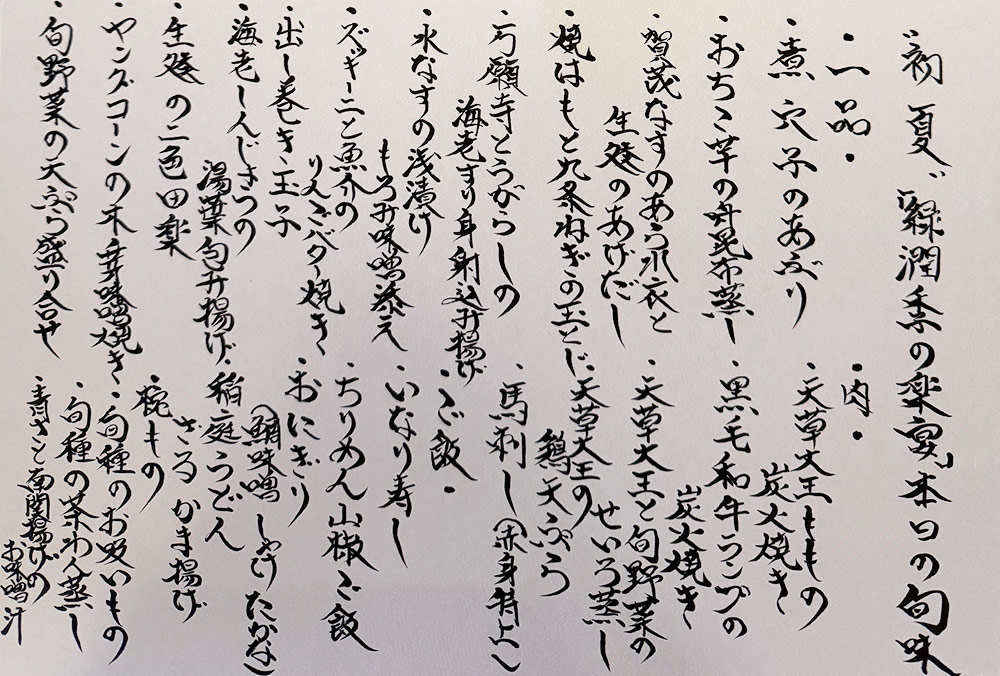 初夏〝緑潤季の楽宴〟本日の旬味
・一品・
・煮穴子のあぶり
・おちこ芋の丹昆布蒸し
・賀茂なすのあうり衣と
生麩のあげだし
・焼はもと九条ねぎの玉とじ
・万願寺とうがらしの
海老すり身射込み揚げ
・水なすの浅漬け
もろみ味噌添え
・ズッキーニと魚介の
りんごバター焼き
・出し巻き玉子
・海老しんじょうの
湯葉包み揚げ
・生麩の二色田楽
・ヤングコーンの木の芽味噌焼き
・旬野菜の天ぷら盛り合せ
・肉・
・天草大王ももの
炭火焼き
・黒毛和牛ランプの
炭火焼き
・天草大王と旬野菜の
せいろ蒸し
・天草大王の
鶏天ぷら
・馬刺し(赤身特上)
・ご飯・
・いなり寿し
・ちりめん山椒ご飯
・おにぎり
(鯛味噌 しゃけ たかな)
・稲庭うどん
ざる かま揚げ
・椀もの
・旬種のお吸いもの
・旬種の茶わん蒸し
・青さと南関揚げの
お味噌汁